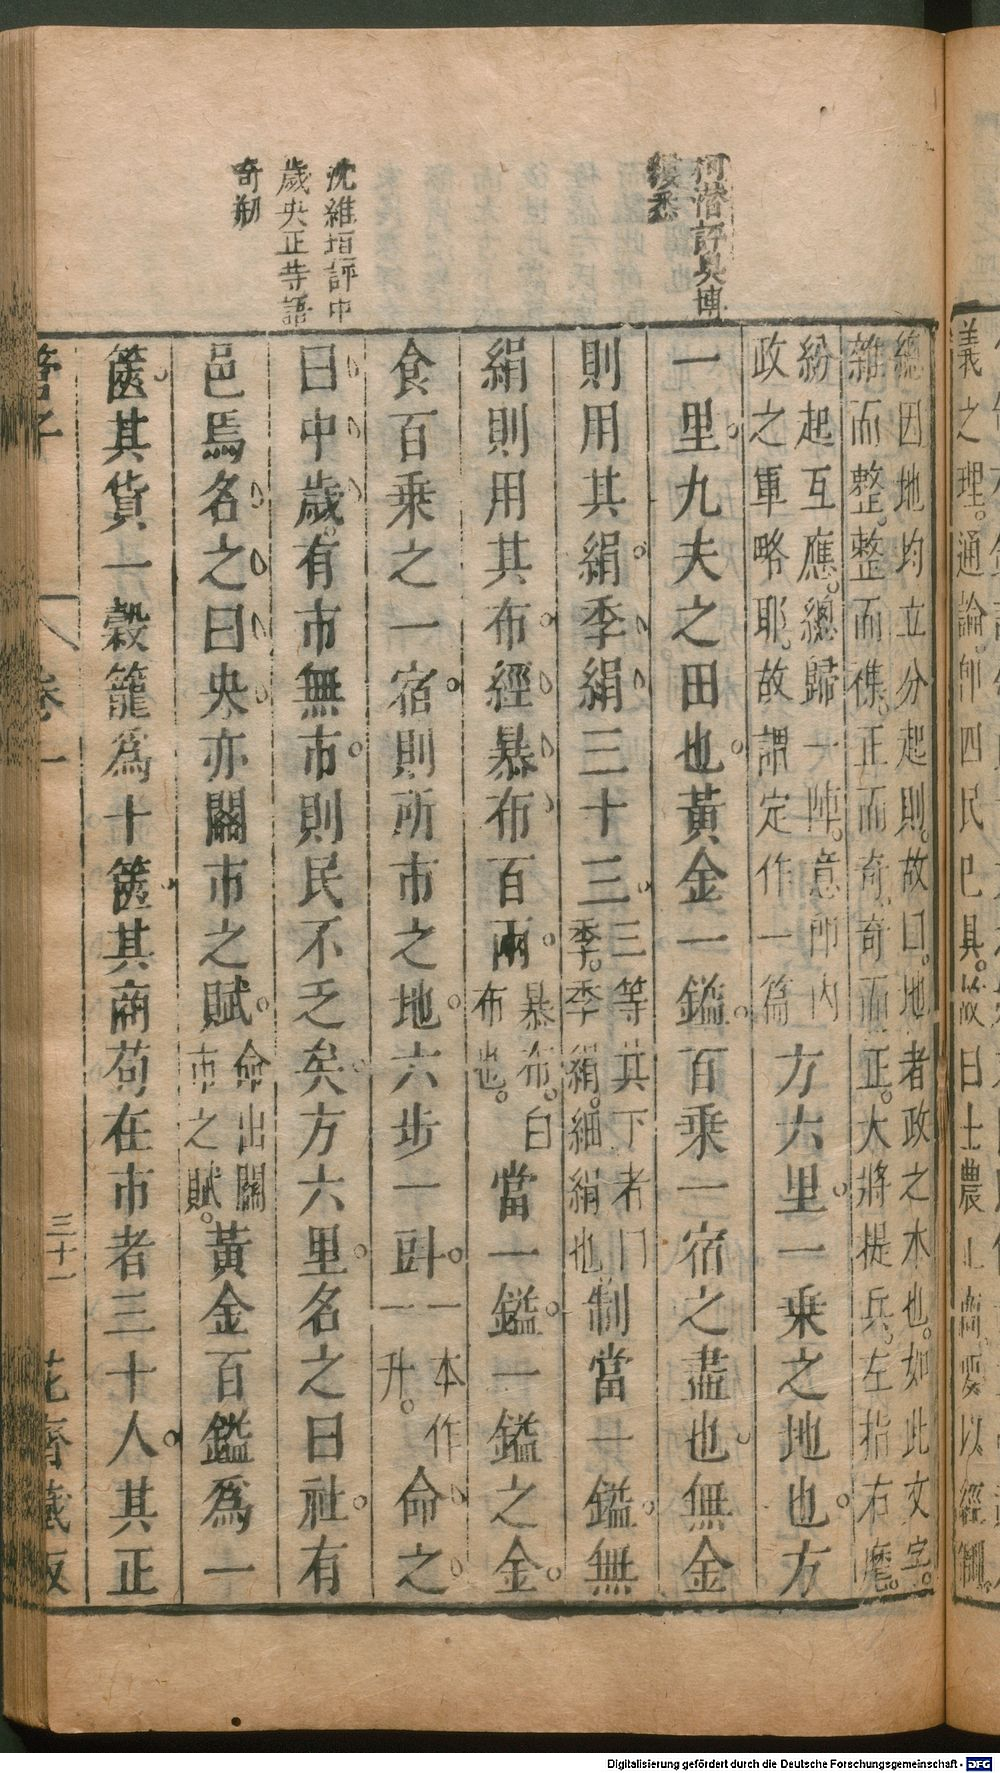 義之理。通論仰四民已具。故曰士農工商。要以經制。
柯潜評具博
悉
沈維垣評中
歲央正等語
奇剏
總因地均立分起則。故曰。地者政之本也。如此文字。
雜而整。整而襍。正而奇。奇而正。大將提兵。左指右麾。
紛起互應。總歸一陣。意即內
政之軍略耶。故謂定作一篇
方六里。一乘之地也。方
一里。九夫之田也。黃金一鎰。百乘一宿之盡也。無金
則用其絹。季絹三十三。
三等其下者門
季。季絹。細絹也
制當一鎰。無
絹則用其布。經暴布百兩。
暴布。白
布也。
當一鎰。一鎰之金。
食百乘之一宿。則所市之地。六步一㪷。
一本作
一升。
命之
曰中歲。有市無市。則民不乏矣。方六里。名之曰社。有
邑焉名之曰央。亦關市之賦。
命出關
市之賦。
黃金百鎰爲一
篋。其貨一穀籠爲十篋。其商苟在市者三十人。其正
管子 卷一 三十一 花齋藏板
Digitalisierung gefördert durch die Deutsche Forschungsgemeinschaft - DFG